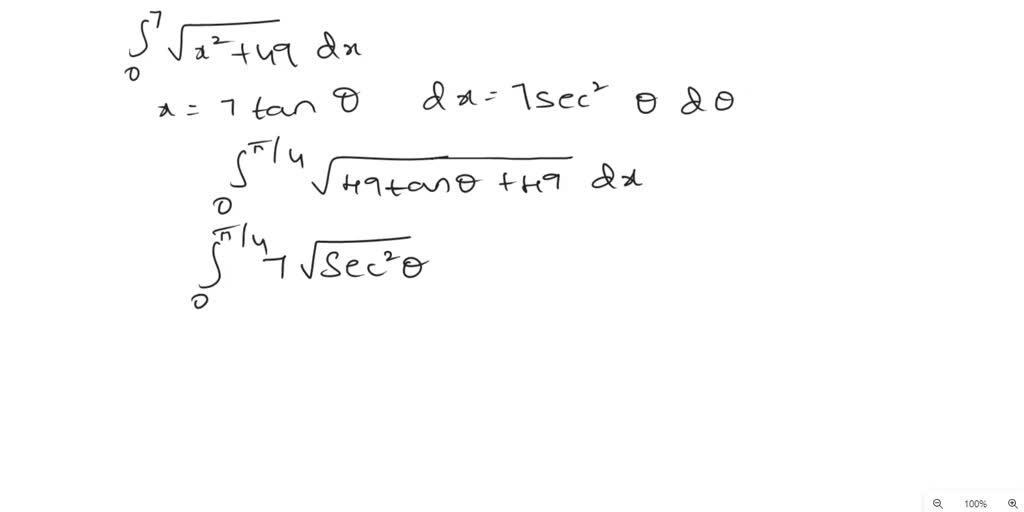 ∫₀⁷ √(x²+49) dx
x = 7 tan θ dx = 7sec² θ dθ
∫₀^(π/4) √(49tanθ +49) dx
∫₀^(π/4) 7 √(sec²θ)
100%